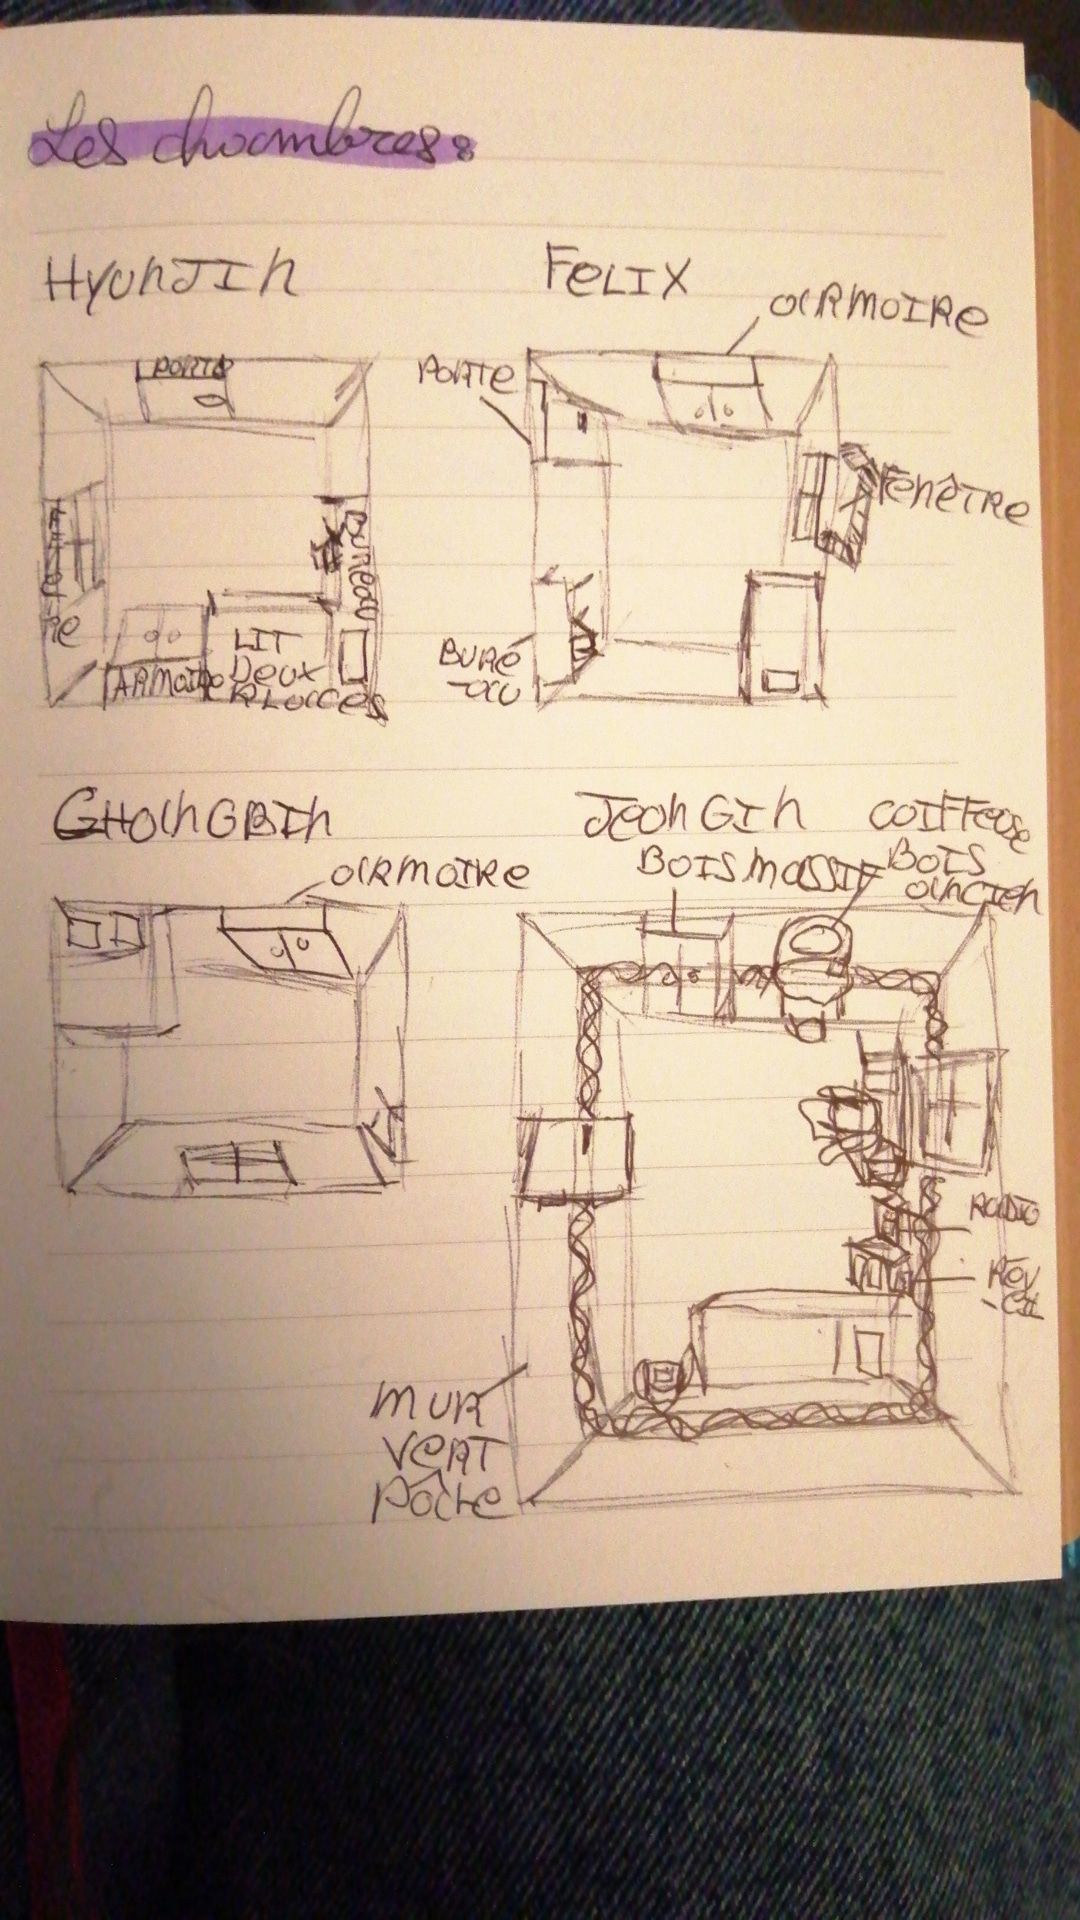 Les chambres:
HYUNJIN
FELIX
ARMOIRE
PORTE
PORTE
FENÊTRE
BUREAU
LIT
DEUX
PLACES
ARMOIRE
BURE
-AU
CHANGBIN
JEONGIN
COIFFEUSE
BOIS
ANCIEN
BOIS MASSIF
ARMOIRE
RADIO
RÉV
-EIL
MUR
VERT
PÂLE